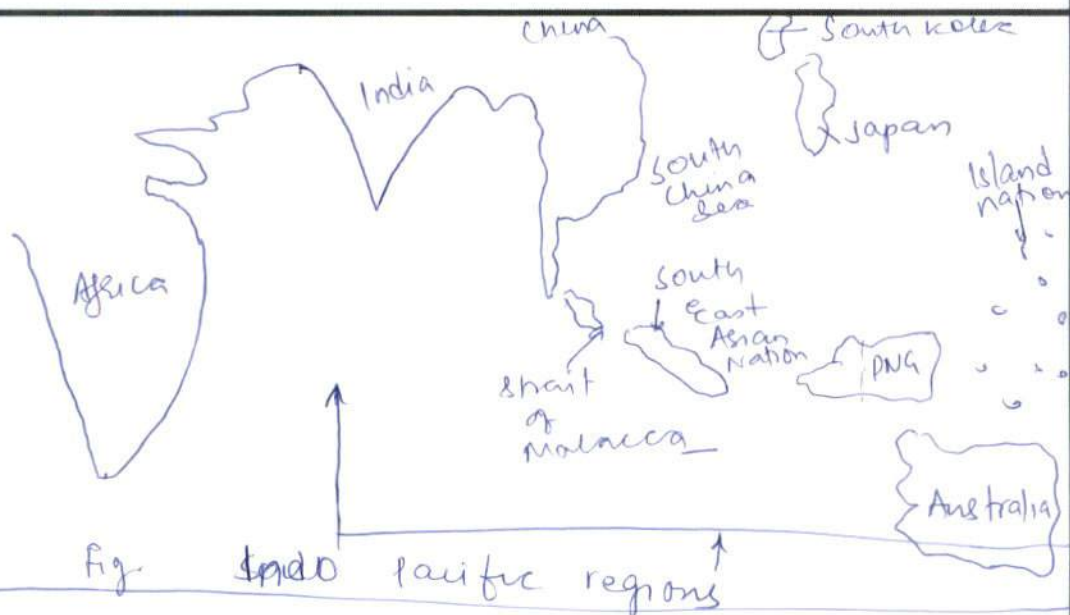 China
South Korea
India
Japan
South
China
Sea
Island
nation
Africa
South
East
Asian
Nation
PNG
Strait
of
Malacca
Australia
Fig. Indo Pacific regions